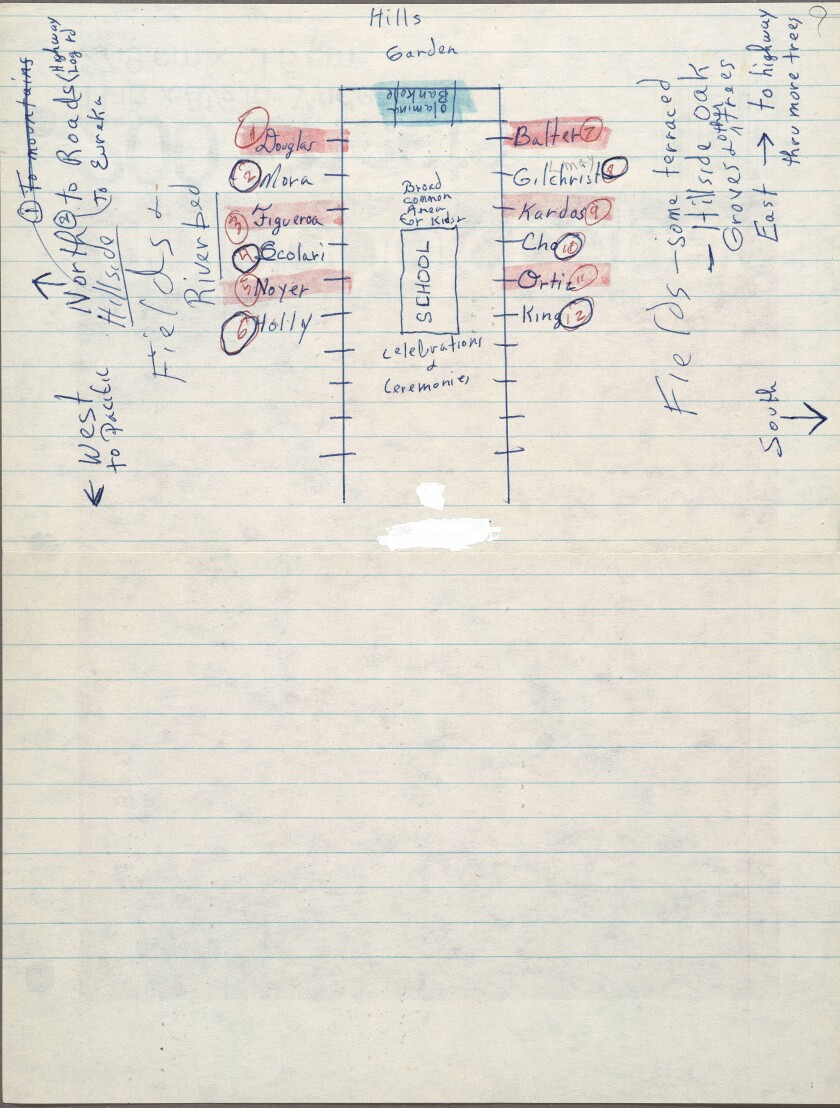 Hills
Garden
Olamina
Bankole
① Douglas
② Mora
③ Figueroa
④ Scolari
⑤ Noyer
⑥ Holly
Balter ⑦
Gilchrist ⑧
Kardos ⑨
Cho ⑩
Ortiz ⑪
King ⑫
Broad
common
Area
for Kids
SCHOOL
Celebrations
&
Ceremonies
① To mountains
North ② to Roads (Highway
Log rd
Hillside (To Eureka
Fields &
Riverbed
← West
to Pacific
Fields - some terraced
- Hillside oak
Groves & other trees
East → to highway
thru more trees
South →